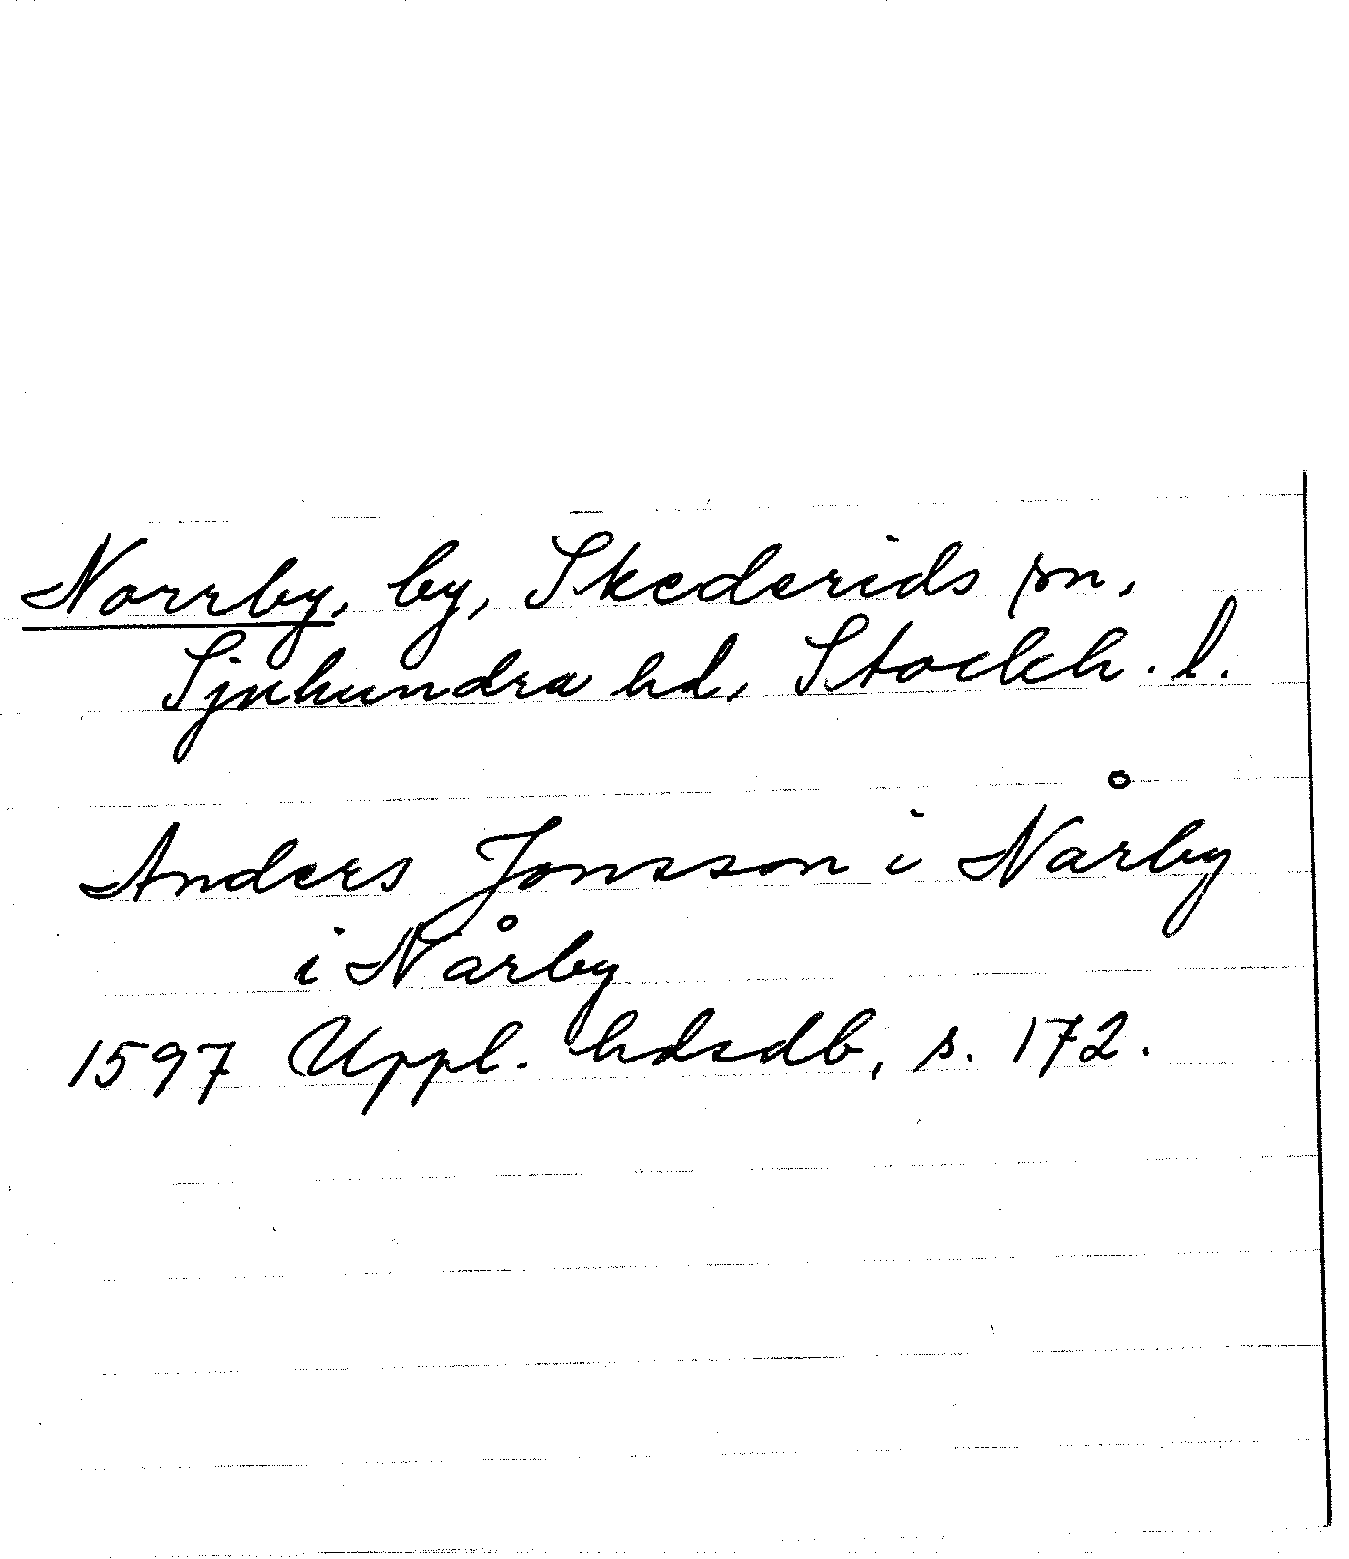 Norrby, by, Skederids sn,
Sjuhundra hd, Stockh. l.
Anders Jonsson i Nårby
i Nårby
1597 Uppl. hdsdb, s. 172.